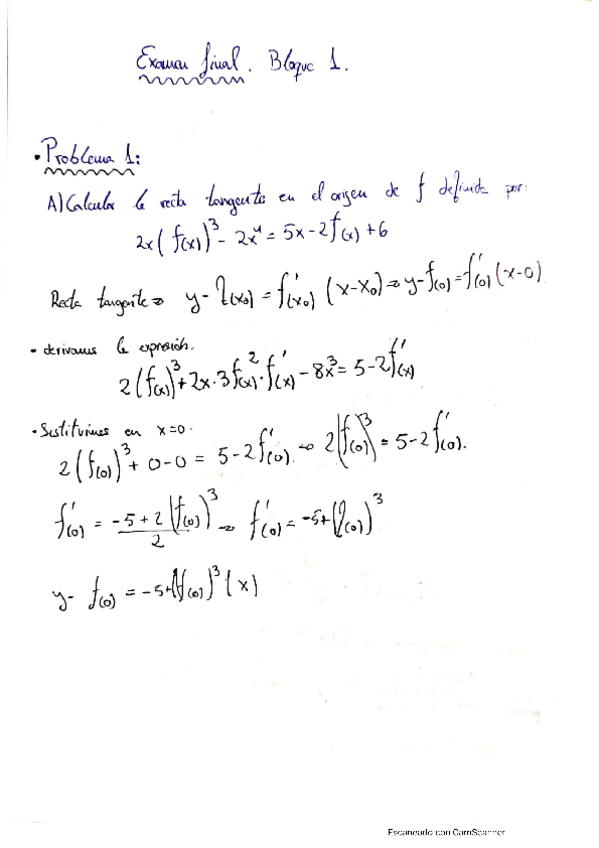 Examen final. Bloque 1.
• Problema 1:
A) Calcular la recta tangente en el origen de f definida por:
2x(f(x))³ - 2x⁴ = 5x - 2f(x) + 6
Recta tangente ⇒ y - f(x₀) = f'(x₀) (x - x₀) ⇒ y - f(0) = f'(0) (x - 0)
• derivamos la expresión.
2(f(x))³ + 2x · 3f(x)² · f'(x) - 8x³ = 5 - 2f'(x)
• Sustituimos en x=0.
2(f(0))³ + 0 - 0 = 5 - 2f'(0). → 2(f(0))³ = 5 - 2f'(0).
f'(0) = -5 + 2(f(0))³ / 2 → f'(0) = -5 + (f(0))³
y - f(0) = -5 + (f(0))³ (x)
Escaneado con CamScanner